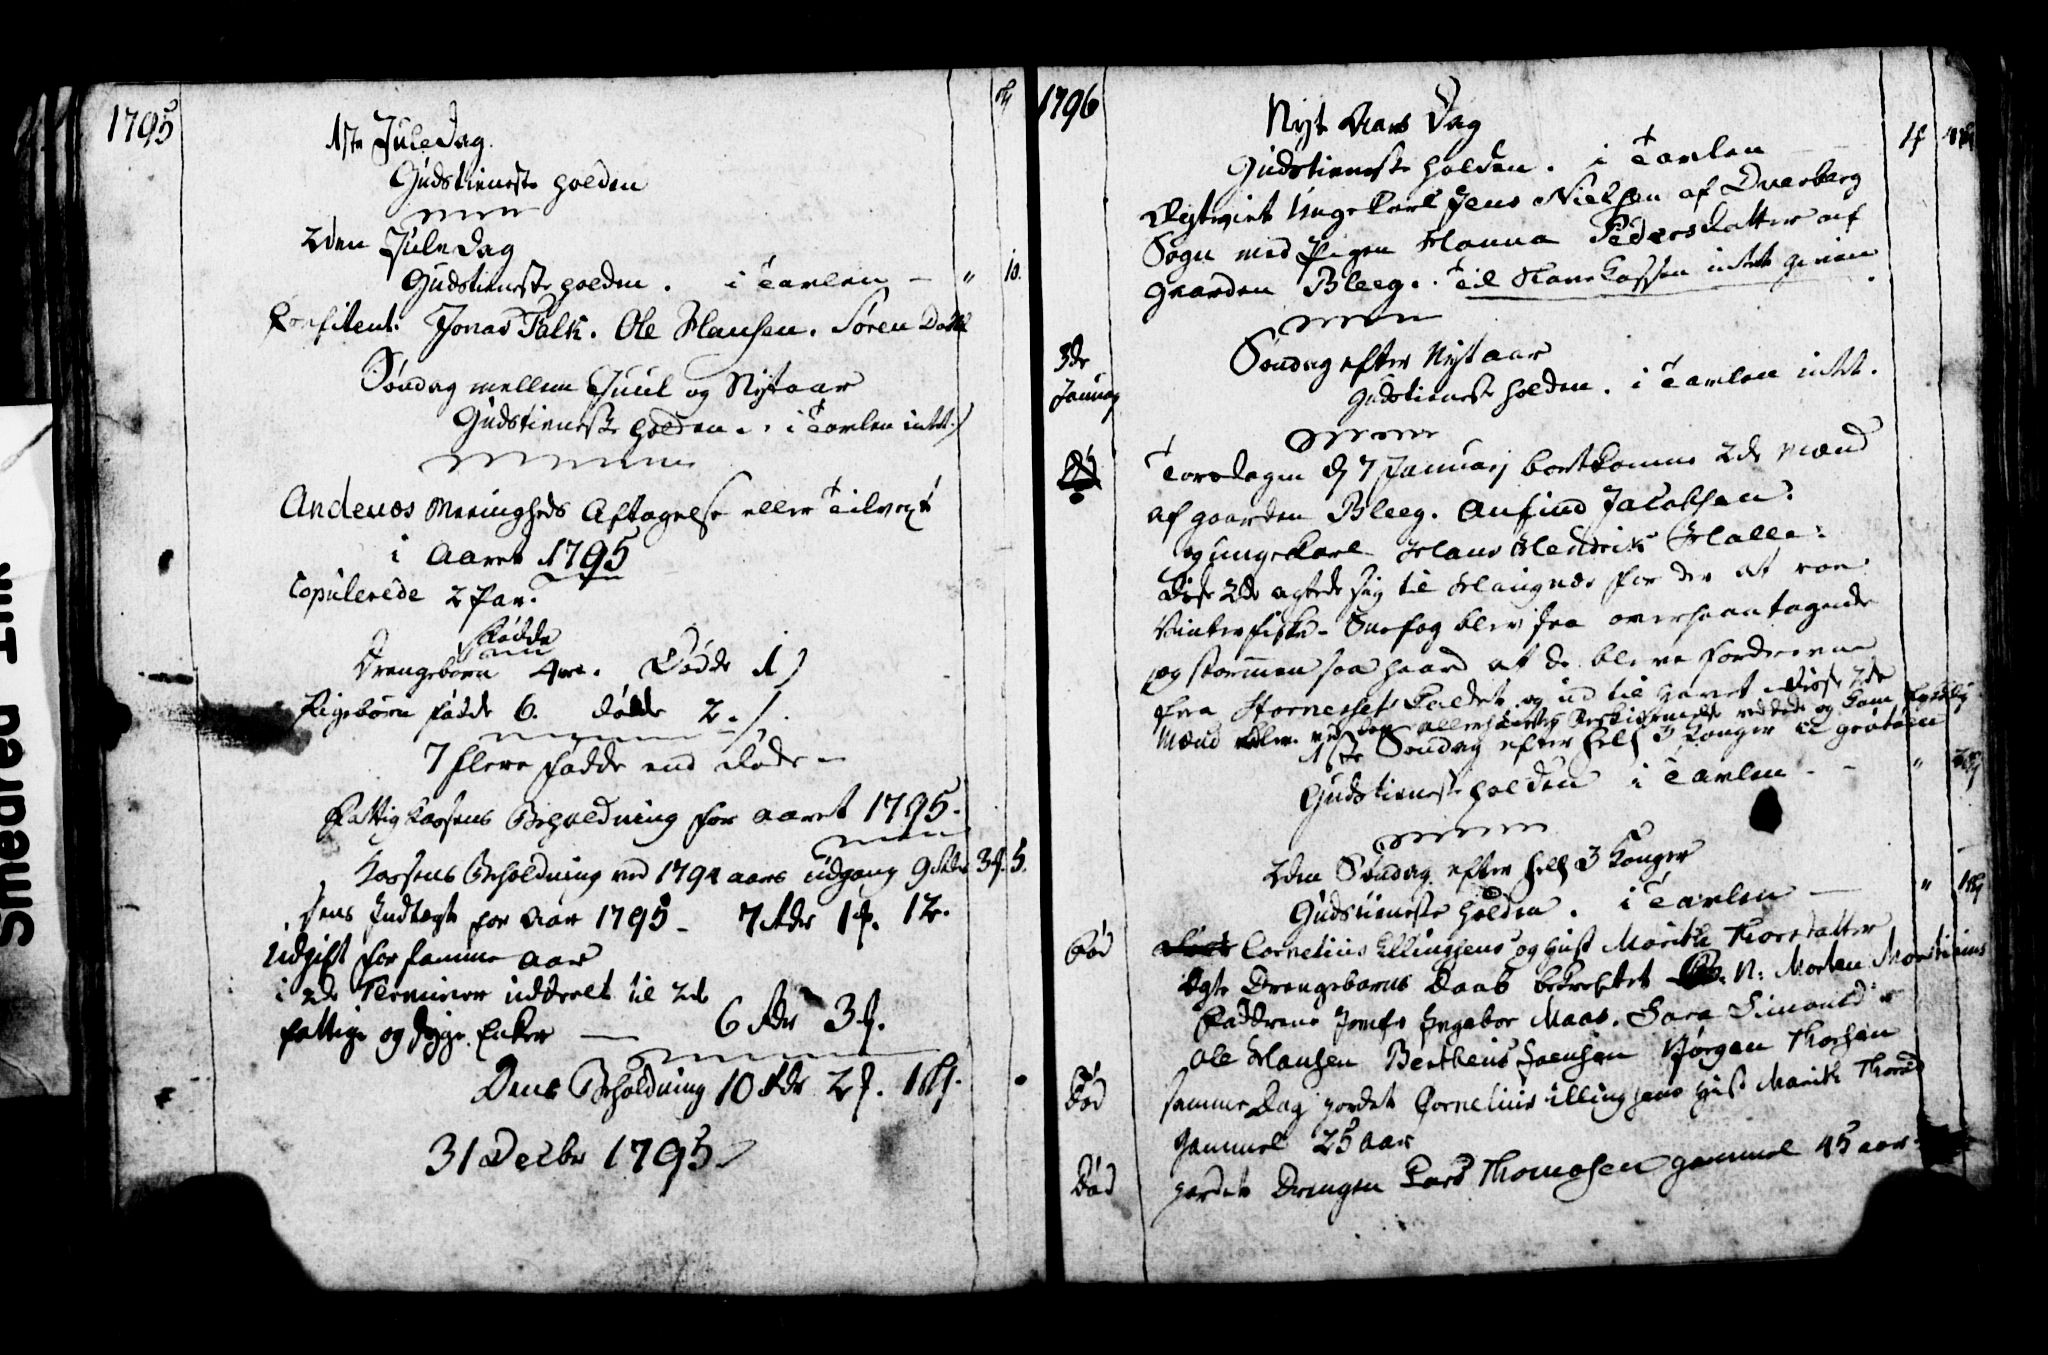 1795
1ste Juledag
Gudstieneste holden
2den Juledag
Gudstieneste holden . i Tavlen - " 10.
Confitent: Jonas Falk. Ole Hansen. Søren Dahl
Søndag mellem Juul og Nytaar
Gudstieneste holden . i Tavlen intet
Andenæs Menigheds Aftagelse eller Tilvext
i Aaret 1795
Copulerede 2 Par.
Fødde
Drengebørn 4re. Døde 1
Pigebørn fødde 6. døde 2.
7 flere fødde end døde
Fattig Kassens Beholdning for Aaret 1795.
Kassens Beholdning ved 1794 aars udgang 9 Rdr 3 5.
Dens Indtægt for Aar 1795 - 7 Rdr 1 12.
Udgift for samme Aar
i 2de Terminer uddeelt til 2de
fattige og Enker — 6 Rdr 3
Dens Beholdning 10 Rdr 2 1
31 Decbr 1795
1796
Nyt Aars Dag
Gudstieneste holden . i Tavlen
Ungekarl Jens Nielsen af Dverberg
Sogn med Pigen Hanna Pedersdatter af
Gaarden Bleeg. Til intet given
3de
Januarj
Søndag efter Nytaar
Gudstieneste holden . i Tavlen intet.
Torsdagen d 7 Januarj bortkomme 2de Mænd
af gaarden Bleeg. Anfind Jacobsen.
og ungekarl Hans Hendrik Halle:
Disse 2de agtede sig til Haugnæs for der at roe
Vinterfiske - Snefog blev saa overhaantagende
og stormen saa haard at de bleve fordrevne
fra og ud til Havet disse 2de
Mænd
1ste Søndag efter hell 3 Konger
Gudstieneste holden i Tavlen - - "
2den Søndag efter hell 3 Konger
Gudstieneste holden . i Tavlen — "
Fød
Cornelius Ellingsens og Hust Marith Thorsdatter
Ægte Drengebarns Daab bekreftet N: Morten
Faddrene Jomfr Ingebor Maas. Sara Simonsd
Ole Hansen Bertheus Jørgen Thorsen
Død
samme Dag jordet Cornelius Ellingsens Hust Marith Thorsd
gammel 25 aar
Død
jordet Drengen Lars Thomasen gammel aar